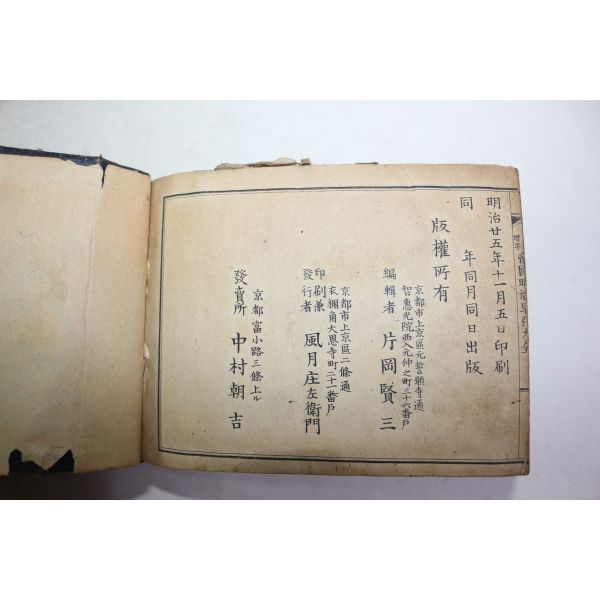 明治廿五年十一月五日印刷
同　　年同月同日出版
版權所有
京都市上京區元誓願寺通
智惠光院西入元仲之町三十六番戶
編輯者　片岡賢三
京都市上京區二條通
衣棚角大恩寺町二十一番戶
印刷兼
發行者　風月庄左衛門
京都富小路三條上ル
發賣所　中村朝吉